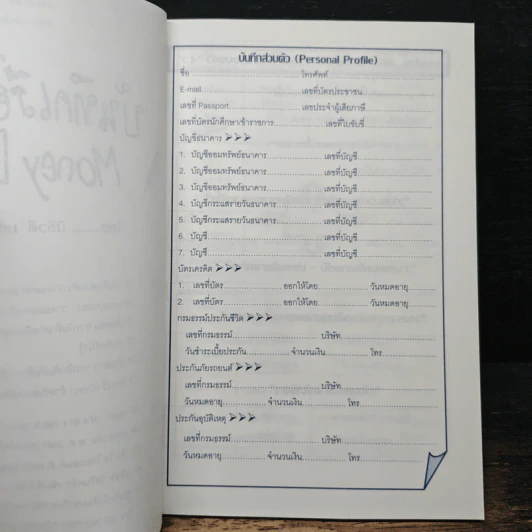 บันทึกส่วนตัว (Personal Profile)
ชื่อ โทรศัพท์
E-mail เลขที่บัตรประชาชน
เลขที่ Passport เลขประจำผู้เสียภาษี
เลขที่บัตรนักศึกษา/ข้าราชการ เลขที่ใบขับขี่
บัญชีธนาคาร ➢➢➢
1. บัญชีออมทรัพย์ธนาคาร เลขที่บัญชี
2. บัญชีออมทรัพย์ธนาคาร เลขที่บัญชี
3. บัญชีออมทรัพย์ธนาคาร เลขที่บัญชี
4. บัญชีกระแสรายวันธนาคาร เลขที่บัญชี
5. บัญชีกระแสรายวันธนาคาร เลขที่บัญชี
6. บัญชี เลขที่บัญชี
7. บัญชี เลขที่บัญชี
บัตรเครดิต ➢➢➢
1. เลขที่บัตร ออกให้โดย วันหมดอายุ
2. เลขที่บัตร ออกให้โดย วันหมดอายุ
กรมธรรม์ประกันชีวิต ➢➢➢
เลขที่กรมธรรม์ บริษัท
วันชำระเบี้ยประกัน จำนวนเงิน โทร
ประกันภัยรถยนต์ ➢➢➢
เลขที่กรมธรรม์ บริษัท
วันหมดอายุ จำนวนเงิน โทร
ประกันอุบัติเหตุ ➢➢➢
เลขที่กรมธรรม์ บริษัท
วันหมดอายุ จำนวนเงิน โทร